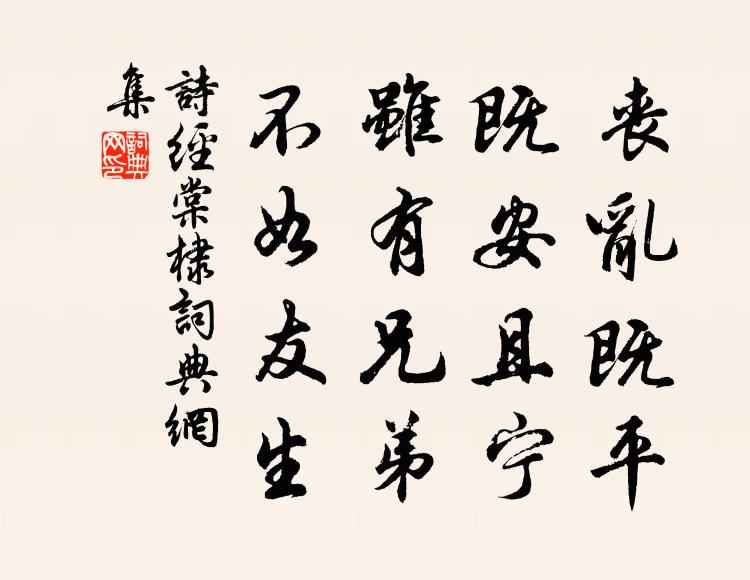 丧亂既平
既安且宁
雖有兄弟
不如友生
詩經棠棣詞典網
集
詞典
网印